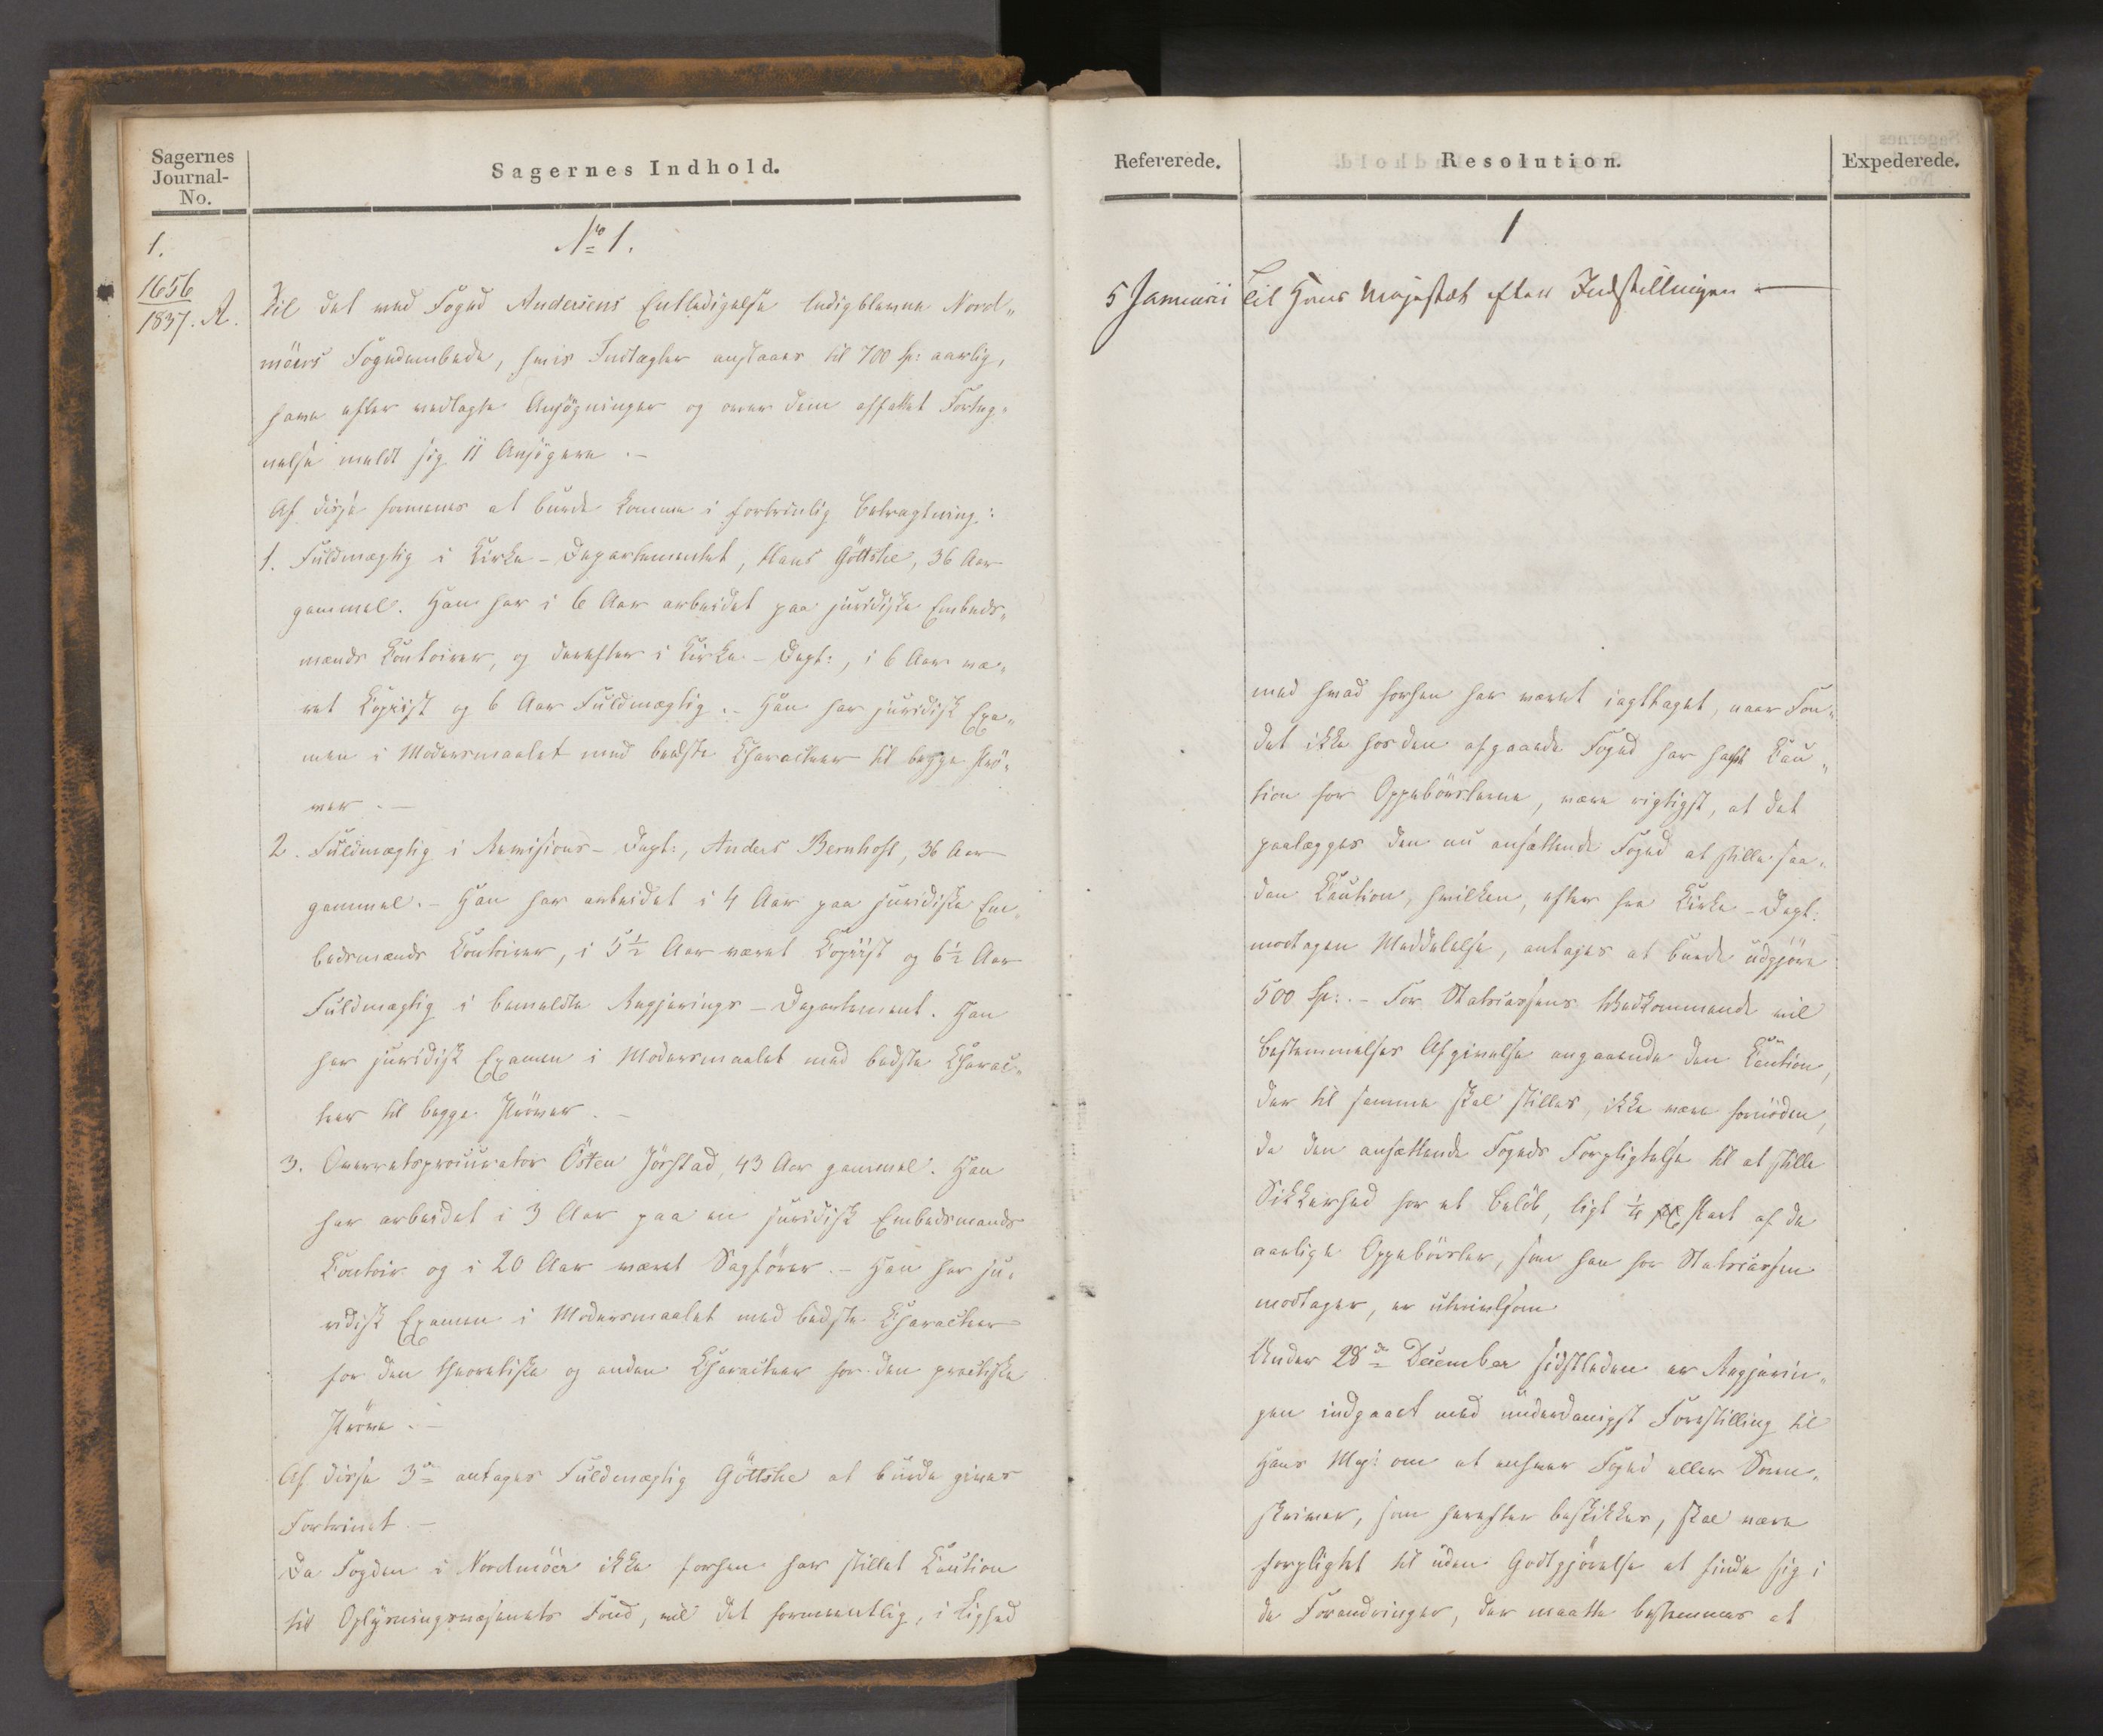 Sagernes
Journal-
No.
Sagernes Indhold.
1.
No 1.
1656
1837. A.
Til det ved Foged Andersens Entledigelse ledigblevne Nord„
möers Fogedembede, hvis Indtægter anslaaes til 700 Sp: aarlig,
have efter vedlagte Ansøgninger og over dem affattet Forteg„
nelse meldt sig 11 Ansögere. –
Af disse formenes at burde komme i fortrinlig Betragtning:
1. Fuldmægtig i Kirke-Departementet, Hans Göttshe, 36 Aar
gammel. Han har i 6 Aar arbeidet paa juridiske Embeds„
mænds Contoirer, og derefter i Kirke-Dept:, i 6 Aar væ„
ret Copiist og 6 Aar Fuldmægtig. – Han har juridisk Exa„
men i Modersmaalet med bedste Characteer til begge Prö„
ver. –
2. Fuldmægtig i Revisions-Dept:, Anders Bernhoft, 36 Aar
gammel. – Han har arbeidet i 4 Aar paa juridiske Em„
bedsmænds Contoirer, i 5½ Aar været Copiist og 6½ Aar
Fuldmægtig i bemeldte Regjerings-Departement. Han
har juridisk Examen i Modersmaalet med bedste Charac„
teer til begge Pröver. –
3. Overretsprocurator Östen Jörstad, 43 Aar gammel. Han
har arbeidet i 3 Aar paa en juridisk Embedsmands
Contoir og i 20 Aar været Sagförer. – Han har ju„
ridisk Examen i Modersmaalet med bedste Characteer
for den theoretiske og anden Characteer for den practiske
Pröve. –
Af disse 3de antages Fuldmægtig Göttshe at burde gives
Fortrinet. –
Da Fogden i Nordmöer ikke forhen har stillet Caution
til Oplysningsvæsenets Fond, vil det formeentlig, i Lighed
Refererede.
Resolution.
Expederede.
1
5 Januarii Til Hans Majestæt efter Indstillingen —
med hvad forhen har været iagttaget, naar Fon„
det ikke hos den afgaaede Foged har havt Cau„
tion for Oppebörslerne, være rigtigst, at det
paalægges den nu ansættende Foged at stille saa„
dan Caution, hvilken, efter fra Kirke-Dept:
modtagen Meddelelse, antages at burde udgjöre
500 Sp:. – For Statscassens Vedkommende vil
Bestemmelses Afgivelse angaaende den Caution,
der til samme skal stilles, ikke være fornöden,
da den ansættende Fogeds Forpligtelse til at stille
Sikkerhed for et Belöb, ligt ¼ Part af de
aarlige Oppebörsler, som han for Statscassen
modtager, er utvivlsom
Under 28de December sidstleden er Regjerin„
gen indgaaet med underdanigst Forestilling til
Hans Maj: om at enhver Foged eller Soren„
skriver, som herefter beskikkes, skal være
forpligtet til uden Godtgjörelse at finde sig i
de Forandringer, der maatte bestemmes at